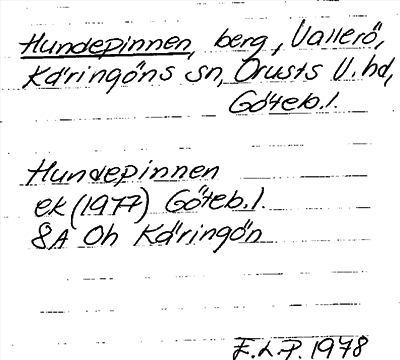 Hundepinnen, berg, Vallerö,
Käringöns sn, Orusts V. hd,
Göteb. l.
Hundepinnen
ek (1977) Göteb. l.
8A Oh Käringön
E.L.P. 1978